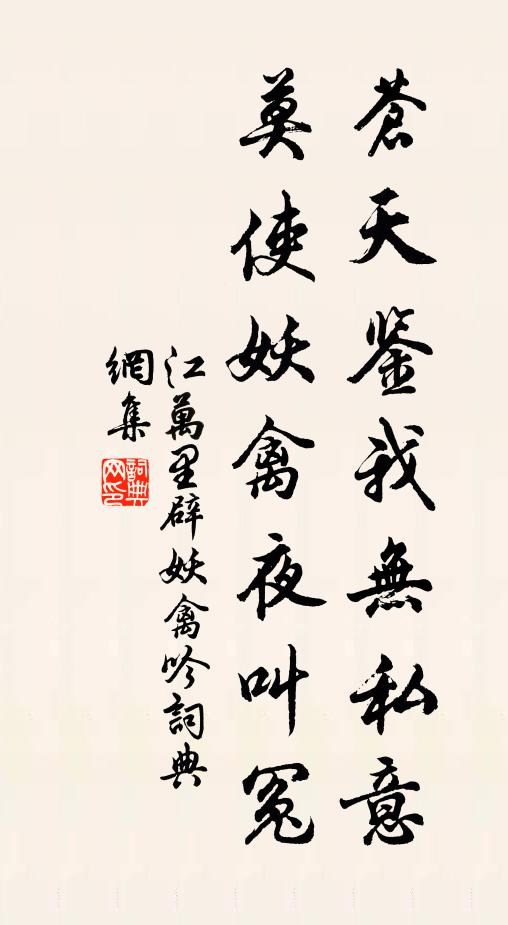 蒼天鉴我無私意
莫使妖禽夜叫冤
江萬里辟妖禽吟詞典
網集
詞典
网印